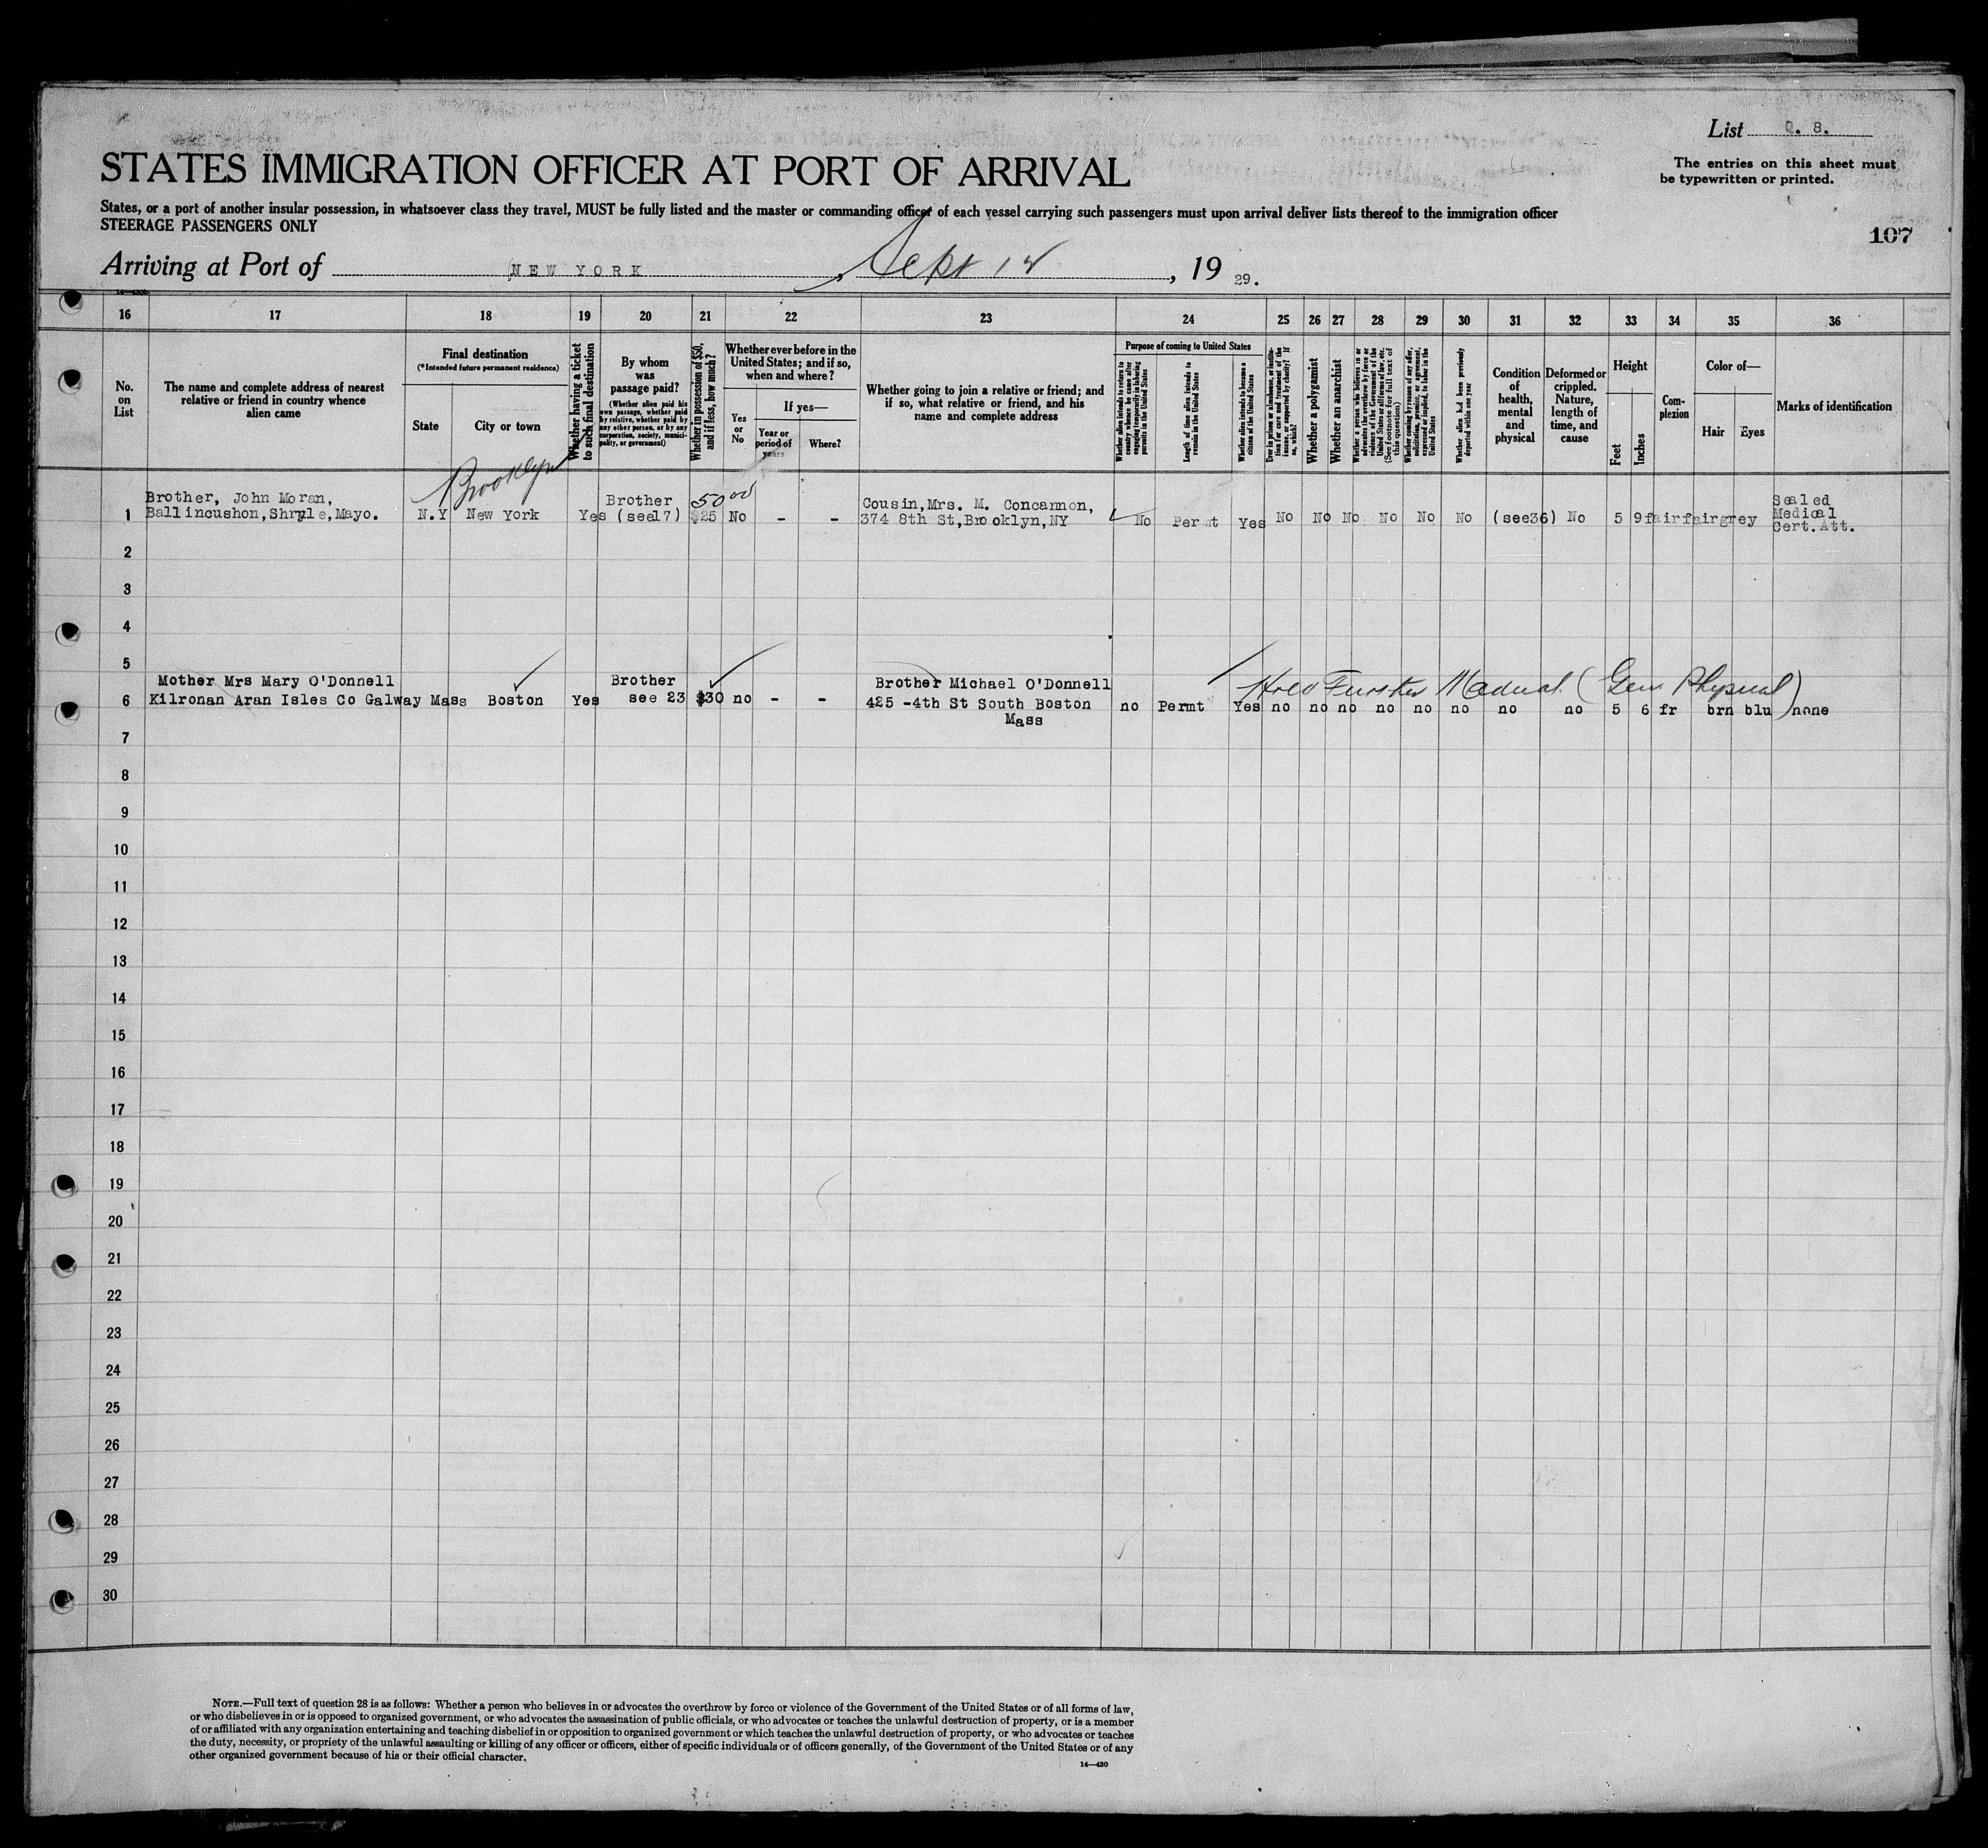 List Q. 8.
STATES IMMIGRATION OFFICER AT PORT OF ARRIVAL
The entries on this sheet must
be typewritten or printed.
States, or a port of another insular possession, in whatsoever class they travel, MUST be fully listed and the master or commanding officer of each vessel carrying such passengers must upon arrival deliver lists thereof to the immigration officer
STEERAGE PASSENGERS ONLY
107
Arriving at Port of NEW YORK, Sept 18, 19 29.
16 17 18 19 20 21 22 23 24 25 26 27 28 29 30 31 32 33 34 35 36
No.
on
List
The name and complete address of nearest
relative or friend in country whence
alien came
Final destination
(*Intended future permanent residence)
State
City or town
Whether having a ticket
to such final destination
By whom
was
passage paid?
(Whether alien paid his
own passage, whether paid
by relative, whether paid by
any other person, or by any
corporation, society, munici-
pality, or government)
Whether in possession of $50,
and if less, how much?
Whether ever before in the
United States; and if so,
when and where?
Yes
or
No
If yes—
Year or
period of
years
Where?
Whether going to join a relative or friend; and
if so, what relative or friend, and his
name and complete address
Purpose of coming to United States
Whether alien intends to return to
country whence he came after
engaging temporarily in laboring
pursuits in the United States
Length of time alien intends to
remain in the United States
Whether alien intends to become a
citizen of the United States
Ever in prison or almshouse, or institu-
tion for care and treatment of the
insane, or supported by charity? If
so, which?
Whether a polygamist
Whether an anarchist
Whether a person who believes in or
advocates the overthrow by force or
violence of the Government of the
United States or all forms of law, etc.
(See footnote for full text of
this question)
Whether coming by reason of any offer,
solicitation, promise, or agreement,
expressed or implied, to labor in the
United States
Whether alien had been previously
deported within one year
Condition
of
health,
mental
and
physical
Deformed or
crippled.
Nature,
length of
time, and
cause
Height
Feet
Inches
Com-
plexion
Color of—
Hair
Eyes
Marks of identification
Brooklyn
Brother, John Moran, Brother 50 00 Cousin,Mrs. M. Concannon, Sealed
1 Ballincushon,Shryle,Mayo. N.Y New York Yes (see17) $25 No - - 374 8th St,Brooklyn,NY No Permt Yes No No No No No No (see36) No 5 9 fair fair grey Medical
Cert.Att.
2
3
4
5
Mother Mrs Mary O'Donnell Brother Brother Michael O'Donnell Hold Further Medical (Gen Physical)
6 Kilronan Aran Isles Co Galway Mass Boston Yes see 23 $30 no - - 425 -4th St South Boston no Permt Yes no no no no no no no no 5 6 fr brn blu none
Mass
7
8
9
10
11
12
13
14
15
16
17
18
19
20
21
22
23
24
25
26
27
28
29
30
NOTE.—Full text of question 28 is as follows: Whether a person who believes in or advocates the overthrow by force or violence of the Government of the United States or of all forms of law,
or who disbelieves in or is opposed to organized government, or who advocates the assassination of public officials, or who advocates or teaches the unlawful destruction of property, or is a member
of or affiliated with any organization entertaining and teaching disbelief in or opposition to organized government or which teaches the unlawful destruction of property, or who advocates or teaches
the duty, necessity, or propriety of the unlawful assaulting or killing of any officer or officers, either of specific individuals or of officers generally, of the Government of the United States or of any
other organized government because of his or their official character.
14—430